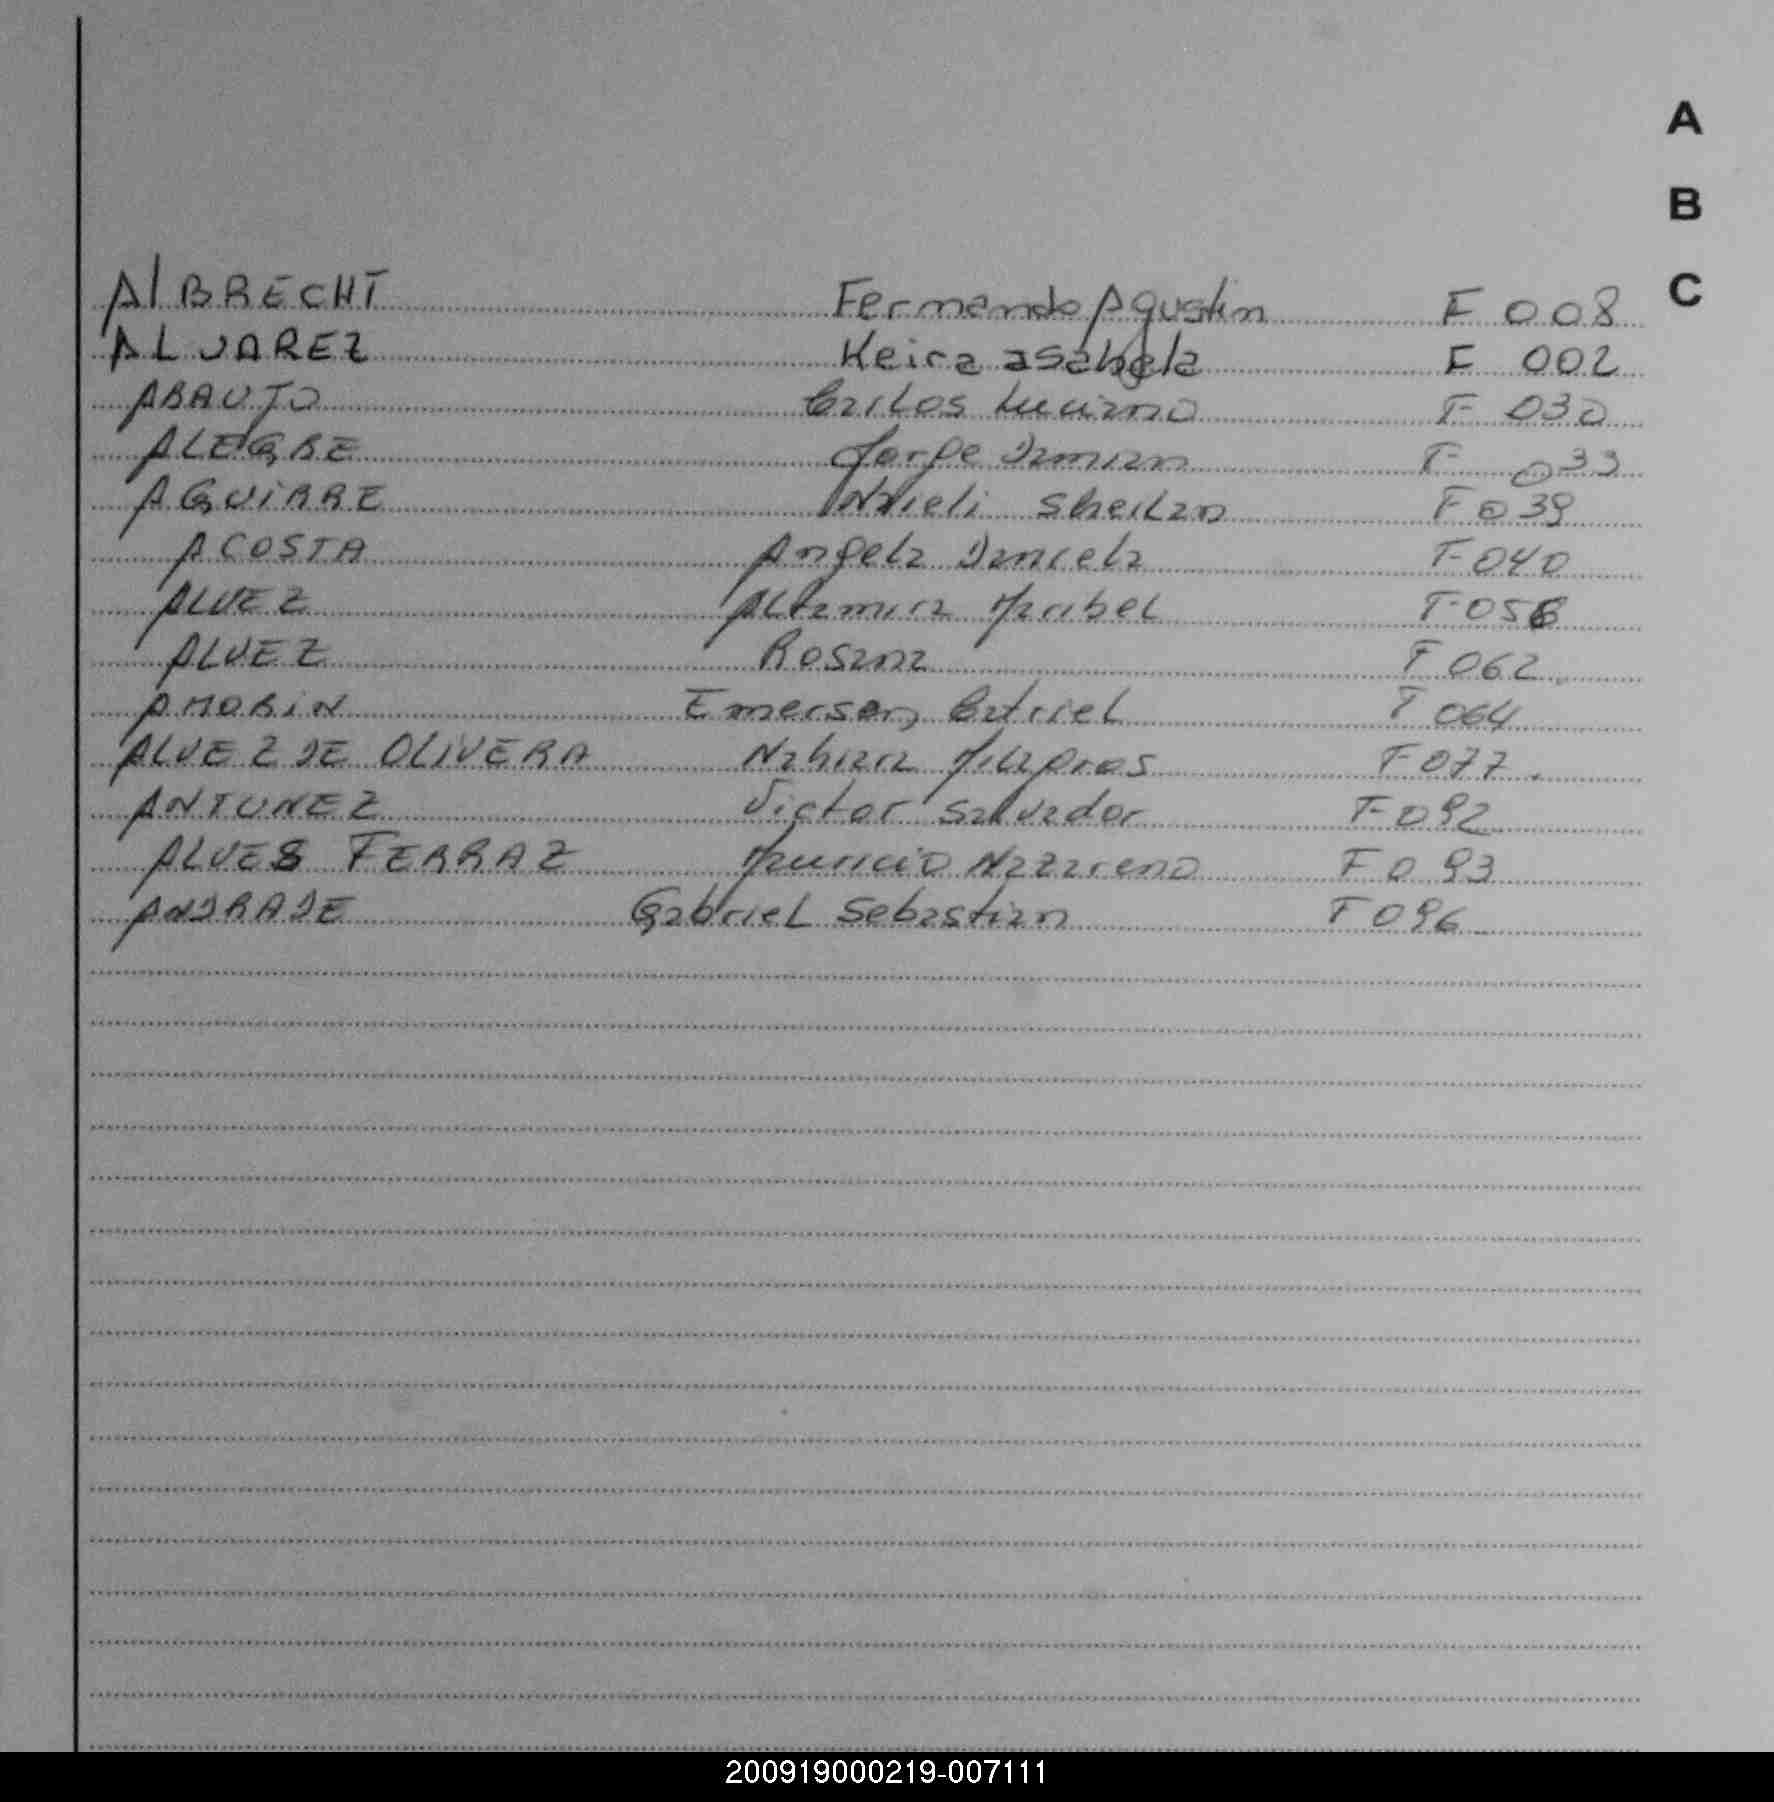 A
B
C
AlBRECHT Fernando Agustin F 008
ALVAREZ Keira asabela F 002
ARAUJO Carlos Luciano F 030
ALEGRE Jorge Damian F 033
AGUIRRE Naieli Sheilan F 039
ACOSTA Angela Daniela F 040
ALVEZ Altamira Maribel F 056
ALVEZ Rosana F 062
AMORIN Emerson, Catriel F 064
ALVEZ DE OLIVERA Nahiara Milagros F 077.
ANTUNEZ Victor Salvador F 092
ALVES FERRAZ Mauricio Nazareno F 093
ANDRADE Gabriel Sebastian F 096
200919000219-007111